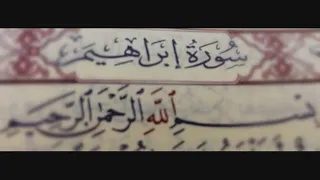 سُورَةُ إِبْرَاهِيمَ
بِسْمِ ٱللَّهِ ٱلرَّحْمَٰنِ ٱلرَّحِيمِ